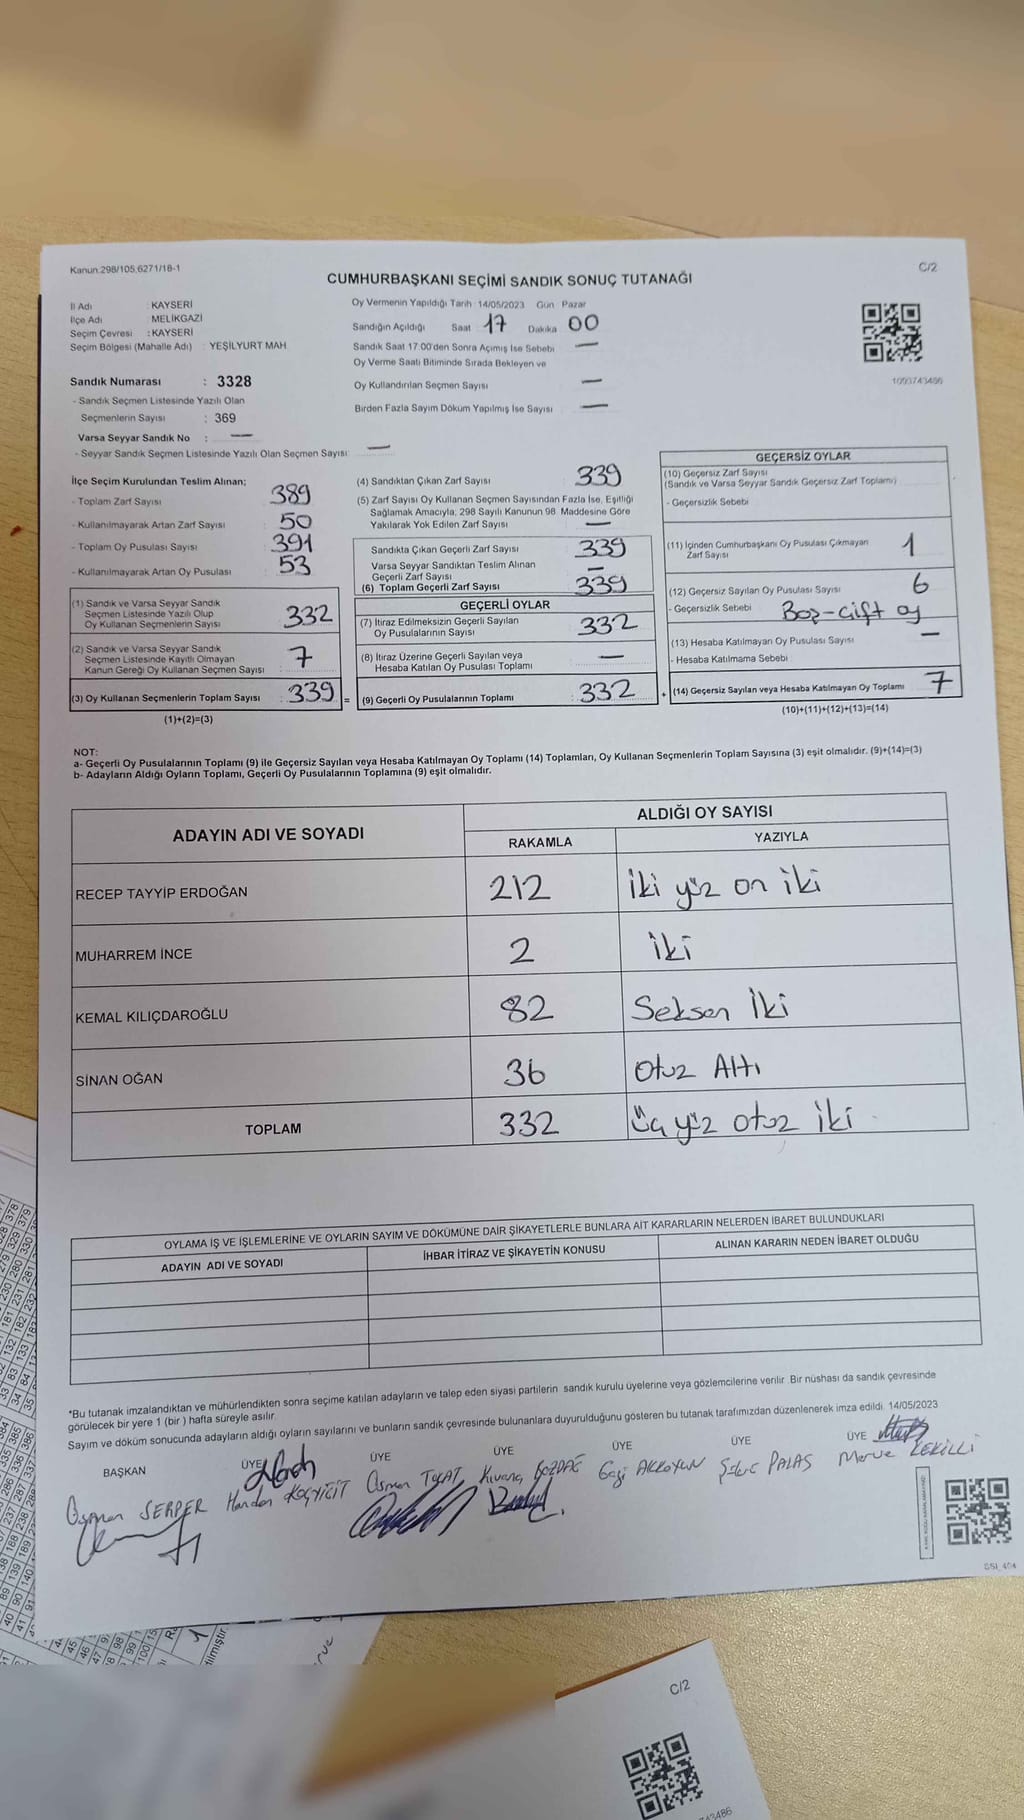 Kanun:298/105,6271/18-1
C/2
CUMHURBAŞKANI SEÇİMİ SANDIK SONUÇ TUTANAĞI
İl Adı : KAYSERİ
İlçe Adı : MELİKGAZİ
Seçim Çevresi : KAYSERİ
Seçim Bölgesi (Mahalle Adı) : YEŞİLYURT MAH.
Oy Vermenin Yapıldığı Tarih :14/05/2023 Gün :Pazar
Sandığın Açıldığı Saat 17 Dakika 00
Sandık Saat 17:00'den Sonra Açımış İse Sebebi —
Oy Verme Saati Bitiminde Sırada Bekleyen ve
Oy Kullandırılan Seçmen Sayısı —
Birden Fazla Sayım Döküm Yapılmış İse Sayısı —
1093743486
Sandık Numarası : 3328
- Sandık Seçmen Listesinde Yazılı Olan
Seçmenlerin Sayısı : 369
Varsa Seyyar Sandık No : —
- Seyyar Sandık Seçmen Listesinde Yazılı Olan Seçmen Sayısı: —
İlçe Seçim Kurulundan Teslim Alınan;
- Toplam Zarf Sayısı : 389
- Kullanılmayarak Artan Zarf Sayısı : 50
- Toplam Oy Pusulası Sayısı : 391
- Kullanılmayarak Artan Oy Pusulası : 53
(1) Sandık ve Varsa Seyyar Sandık
Seçmen Listesinde Yazılı Olup
Oy Kullanan Seçmenlerin Sayısı : 332
(2) Sandık ve Varsa Seyyar Sandık
Seçmen Listesinde Kayıtlı Olmayan
Kanun Gereği Oy Kullanan Seçmen Sayısı : 7
(3) Oy Kullanan Seçmenlerin Toplam Sayısı : 339 =
(1)+(2)=(3)
(4) Sandıktan Çıkan Zarf Sayısı : 339
(5) Zarf Sayısı Oy Kullanan Seçmen Sayısından Fazla İse, Eşitliği
Sağlamak Amacıyla; 298 Sayılı Kanunun 98. Maddesine Göre
Yakılarak Yok Edilen Zarf Sayısı : —
Sandıkta Çıkan Geçerli Zarf Sayısı : 339
Varsa Seyyar Sandıktan Teslim Alınan
Geçerli Zarf Sayısı : —
(6) Toplam Geçerli Zarf Sayısı : 339
GEÇERLİ OYLAR
(7) İtiraz Edilmeksizin Geçerli Sayılan
Oy Pusulalarının Sayısı : 332
(8) İtiraz Üzerine Geçerli Sayılan veya
Hesaba Katılan Oy Pusulası Toplamı : —
(9) Geçerli Oy Pusulalarının Toplamı : 332 +
GEÇERSİZ OYLAR
(10) Geçersiz Zarf Sayısı
(Sandık ve Varsa Seyyar Sandık Geçersiz Zarf Toplamı)
- Geçersizlik Sebebi
(11) İçinden Cumhurbaşkanı Oy Pusulası Çıkmayan
Zarf Sayısı 1
(12) Geçersiz Sayılan Oy Pusulası Sayısı : 6
- Geçersizlik Sebebi Boş-Çift oy
(13) Hesaba Katılmayan Oy Pusulası Sayısı —
- Hesaba Katılmama Sebebi :
(14) Geçersiz Sayılan veya Hesaba Katılmayan Oy Toplamı : 7
(10)+(11)+(12)+(13)=(14)
NOT:
a- Geçerli Oy Pusulalarının Toplamı (9) ile Geçersiz Sayılan veya Hesaba Katılmayan Oy Toplamı (14) Toplamları, Oy Kullanan Seçmenlerin Toplam Sayısına (3) eşit olmalıdır. (9)+(14)=(3)
b- Adayların Aldığı Oyların Toplamı, Geçerli Oy Pusulalarının Toplamına (9) eşit olmalıdır.
ADAYIN ADI VE SOYADI ALDIĞI OY SAYISI
RAKAMLA YAZIYLA
RECEP TAYYİP ERDOĞAN 212 İki yüz on iki
MUHARREM İNCE 2 İki
KEMAL KILIÇDAROĞLU 82 Seksen İki
SİNAN OĞAN 36 Otuz Altı
TOPLAM 332 Üç yüz otuz iki
OYLAMA İŞ VE İŞLEMLERİNE VE OYLARIN SAYIM VE DÖKÜMÜNE DAİR ŞİKAYETLERLE BUNLARA AİT KARARLARIN NELERDEN İBARET BULUNDUKLARI
ADAYIN ADI VE SOYADI İHBAR İTİRAZ VE ŞİKAYETİN KONUSU ALINAN KARARIN NEDEN İBARET OLDUĞU
*Bu tutanak imzalandıktan ve mühürlendikten sonra seçime katılan adayların ve talep eden siyasi partilerin sandık kurulu üyelerine veya gözlemcilerine verilir. Bir nüshası da sandık çevresinde
görülecek bir yere 1 (bir ) hafta süreyle asılır.
Sayım ve döküm sonucunda adayların aldığı oyların sayılarını ve bunların sandık çevresinde bulunanlara duyurulduğunu gösteren bu tutanak tarafımızdan düzenlenerek imza edildi. 14/05/2023
BAŞKAN ÜYE ÜYE ÜYE ÜYE ÜYE ÜYE
Osman SERPER Handan KOÇYİĞİT Osman TOKAT Kıvanç BOZDAĞ Gazi AKKOYUN PALAS Merve
SSI_404
C/2